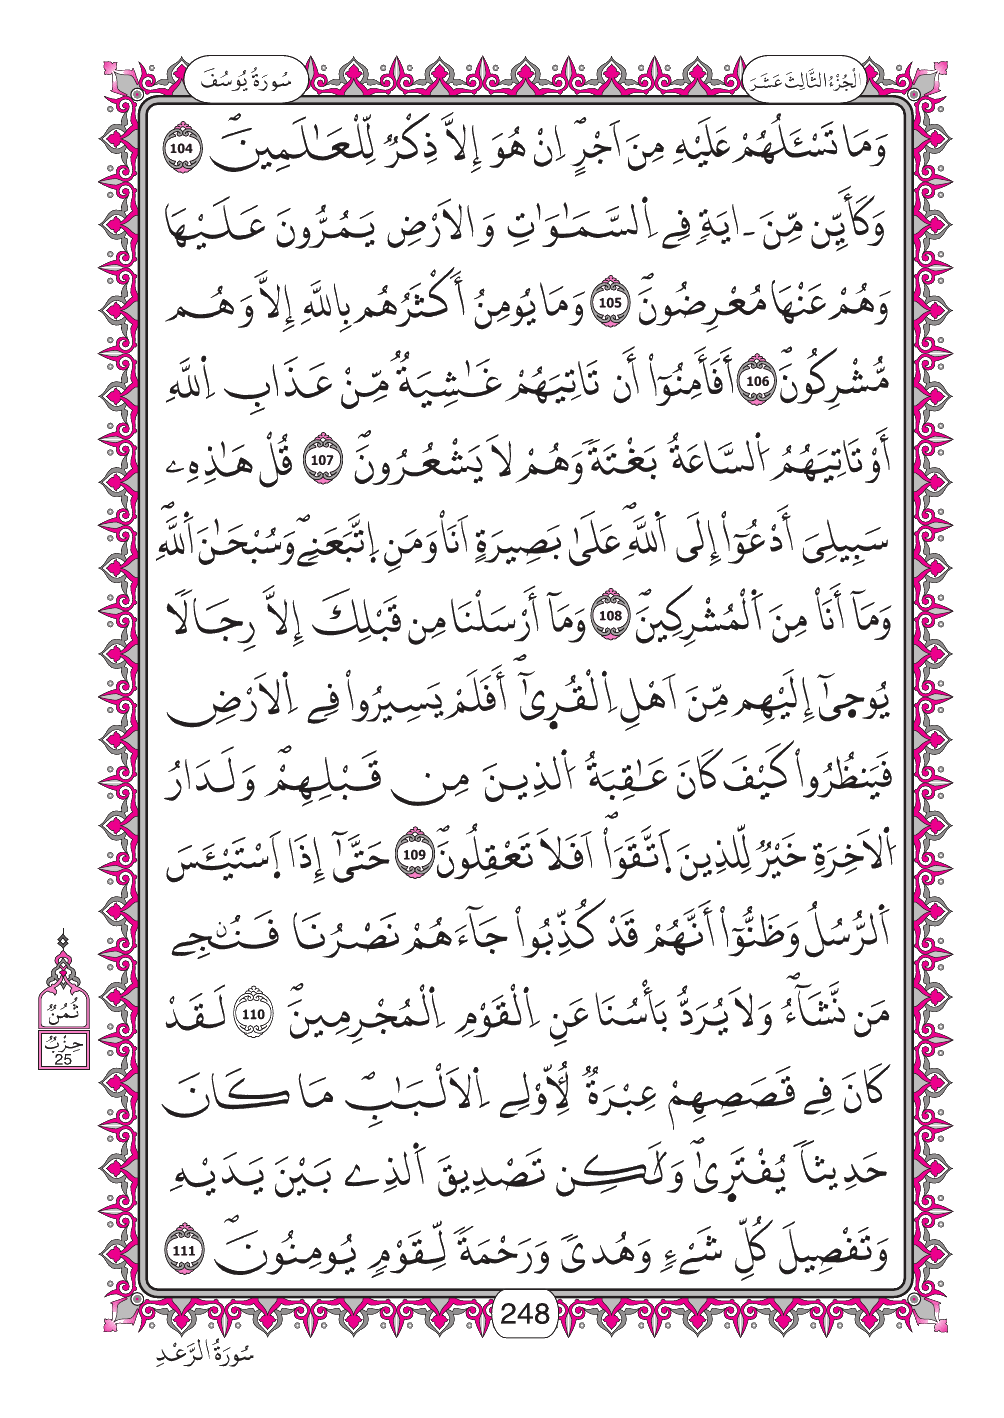 الْجُزْءُ الثَّالِثَ عَشَرَ
سُورَةُ يُوسُفَ
وَمَا تَسْـَٔلُهُمْ عَلَيْهِ مِنَ اَجْرٍ اِنْ هُوَ إِلَّا ذِكْرٌ لِّلْعَٰلَمِينَۖ 104
وَكَأَيِّن مِّنَ ـ ايَةٍ فِے اِ۬لسَّمَٰوَٰتِ وَالَارْضِ يَمُرُّونَ عَلَيْهَا
وَهُمْ عَنْهَا مُعْرِضُونَۖ 105 وَمَا يُومِنُ أَكْثَرُهُم بِاللَّهِ إِلَّا وَهُم
مُّشْرِكُونَۖ 106 أَفَأَمِنُوٓاْ أَن تَاتِيَهُمْ غَٰشِيَةٌ مِّنْ عَذَابِ اِ۬للَّهِ
أَوْ تَاتِيَهُمُ اُ۬لسَّاعَةُ بَغْتَةً وَهُمْ لَا يَشْعُرُونَۖ 107 قُلْ هَٰذِهِۦ
سَبِيلِيَ أَدْعُوٓاْ إِلَى اَ۬للَّهِۖ عَلَىٰ بَصِيرَةٍ اَنَا۠ وَمَنِ اِ۪تَّبَعَنِےۖ وَسُبْحَٰنَ اَ۬للَّهِۖ
وَمَآ أَنَا۠ مِنَ اَ۬لْمُشْرِكِينَۖ 108 وَمَآ أَرْسَلْنَا مِن قَبْلِكَ إِلَّا رِجَالًا
يُوحَىٰٓ إِلَيْهِم مِّنَ اَهْلِ اِ۬لْقُر۪ىٰٓۖ أَفَلَمْ يَسِيرُواْ فِے اِ۬لَارْضِ
فَيَنظُرُواْ كَيْفَ كَانَ عَٰقِبَةُ اُ۬لذِينَ مِن قَبْلِهِمْۖ وَلَدَارُ
اُ۬لَاخِرَةِ خَيْرٌ لِّلذِينَ اَ۪تَّقَوَاْۖ اَفَلَا تَعْقِلُونَۖ 109 حَتَّىٰٓ إِذَا اَ۪سْتَيْـَٔسَ
اَ۬لرُّسُلُ وَظَنُّوٓاْ أَنَّهُمْ قَدْ كُذِّبُواْ جَآءَهُمْ نَصْرُنَا فَنُنۨجِے
مَن نَّشَآءُۖ وَلَا يُرَدُّ بَأْسُنَا عَنِ اِ۬لْقَوْمِ اِ۬لْمُجْرِمِينَۖ 110 لَقَدْ
كَانَ فِے قَصَصِهِمْ عِبْرَةٌ لِّأُوْلِے اِ۬لَالْبَٰبِۖ مَا كَانَ
حَدِيثاً يُفْتَر۪ىٰۖ وَلَٰكِن تَصْدِيقَ اَ۬لذِے بَيْنَ يَدَيْهِ
وَتَفْصِيلَ كُلِّ شَےْءٍ وَهُدىً وَرَحْمَةً لِّقَوْمٍ يُومِنُونَۖ 111
ثُمُنٌ
حِزْبٌ
25
248
سُورَةُ الرَّعْدِ